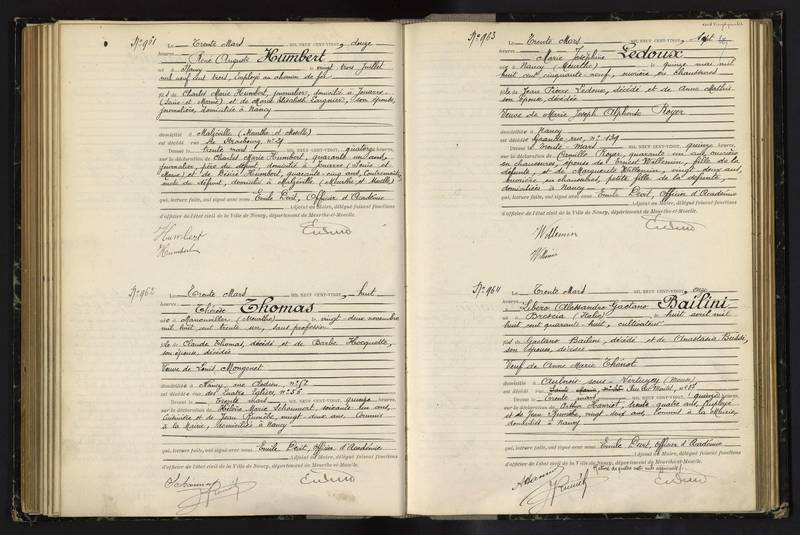 N° 961 Le Trente Mars MIL NEUF CENT-VINGT, douze
heures, René Auguste Humbert
né à Nancy le vingt trois juillet
mil neuf cent trois, employé au chemin de fer
fils de Charles Marie Humbert, journalier, domicilié à Jouarre
(Seine et Marne) et de Marie Elisabeth, son épouse,
journalière, domiciliée à Nancy
domicilié à Malzéville (Meurthe et Moselle)
est décédé rue de Strasbourg n° 29
Dressé le trente mars quatorze heures
sur la déclaration de Charles Marie Humbert, quarante huit ans,
journalier, père du défunt, domicilié à Jouarre (Seine et
Marne) et de Humbert, quarante cinq ans,
oncle du défunt, domicilié à Malzéville (Meurthe et Moselle)
qui, lecture faite, ont signé avec nous Emile Devit, Officier d'Académie
Adjoint au Maire, délégué faisant fonctions
d'officier de l'état civil de la Ville de Nancy, département de Meurthe-et-Moselle.
Humbert
Humbert
N° 962 Le Trente Mars MIL NEUF CENT-VINGT, huit
heures, Thérèse Thomas
née à Manonviller (Meurthe) le vingt deux novembre
mil huit cent trente un, sans profession
fille de Claude Thomas, décédé et de Barbe Hocquette,
son épouse, décédée
Veuve de Louis Mongenet
domiciliée à Nancy, rue Clodion, n° 52
est décédée rue des Quatre Eglises, n° 55
Dressé le trente mars quinze heures
sur la déclaration de Hélène Marie, soixante un ans,
et de Jean, vingt-deux ans, Commis
à la Mairie, domiciliés à Nancy
qui, lecture faite, ont signé avec nous Emile Devit, Officier d'Académie
Adjoint au Maire, délégué faisant fonctions
d'officier de l'état civil de la Ville de Nancy, département de Meurthe-et-Moselle.
N° 963 Le Trente Mars MIL NEUF CENT-VINGT, sept
heures, Marie Joséphine Ledoux
née à Nancy (Meurthe) le quinze mai mil
huit cent cinquante neuf, ouvrière en chaussures
fille de Jean Pierre Ledoux, décédé et de Anne Mathis
son épouse, décédée
Veuve de Marie Joseph Alphonse Royer
domiciliée à Nancy
est décédée Grande rue, n° 129
Dressé le trente mars quinze heures
sur la déclaration de Camille Royer, quarante un ans, ouvrière
en chaussures, épouse de Ernest Willemin, fille de la
défunte, et de Marguerite Willemin, vingt deux ans,
ouvrière en chaussures, petite fille de la défunte,
domiciliées à Nancy
qui, lecture faite, ont signé avec nous Emile Devit, Officier d'Académie
Adjoint au Maire, délégué faisant fonctions
d'officier de l'état civil de la Ville de Nancy, département de Meurthe-et-Moselle.
Willemin
Willemin
N° 964 Le Trente Mars MIL NEUF CENT-VINGT, onze
heures, Libero Alessandro Gaetano Bailini
né à Brescia (Italie) le huit avril mil
huit cent quarante-huit, cultivateur
fils de Gaetano Bailini, décédé et de Anastasia,
son épouse, décédée
Veuf de Anne Marie Thénot
domicilié à Aulnois sous Vertuzey (Meuse)
est décédé rue
Dressé le trente mars quinze heures
sur la déclaration de Arthur, trente quatre ans, Employé
et de Jean, vingt-deux ans, Commis à la Mairie,
domiciliés à Nancy
qui, lecture faite, ont signé avec nous Emile Devit, Officier d'Académie
Adjoint au Maire, délégué faisant fonctions
d'officier de l'état civil de la Ville de Nancy, département de Meurthe-et-Moselle.